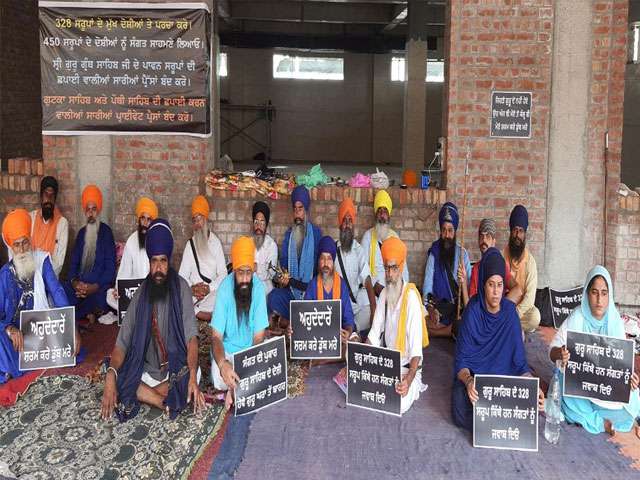 328 ਸਰੂਪਾਂ ਦੇ ਮੁੱਖ ਦੋਸ਼ੀਆਂ ਤੇ ਪਰਚਾ ਕਰੋ।
450 ਸਰੂਪਾਂ ਦੇ ਦੋਸ਼ੀਆਂ ਨੂੰ ਸੰਗਤ ਸਾਹਮਣੇ ਲਿਆਓ
ਸ੍ਰੀ ਗੁਰੂ ਗ੍ਰੰਥ ਸਾਹਿਬ ਜੀ ਦੇ ਪਾਵਨ ਸਰੂਪਾਂ ਦੀ
ਛਪਾਈ ਵਾਲੀਆਂ ਸਾਰੀਆਂ ਪ੍ਰੈੱਸਾਂ ਬੰਦ ਕਰੋ।
ਗੁਟਕਾ ਸਾਹਿਬ ਅਤੇ ਪੋਥੀ ਸਾਹਿਬ ਦੀ ਛਪਾਈ ਕਰਨ
ਵਾਲੀਆਂ ਸਾਰੀਆਂ ਪ੍ਰਾਈਵੇਟ ਪ੍ਰੈਸਾਂ ਬੰਦ ਕਰੋ।
ਸ਼ਰਮ ਕਰੋ ਡੁੱਬ ਮਰੋ
ਅਹੁਦੇਦਾਰੋਂ
ਸ਼ਰਮ ਕਰੋ ਡੁੱਬ ਮਰੋ
ਅਹੁਦੇਦਾਰੋਂ
ਸ਼ਰਮ ਕਰੋ ਡੁੱਬ ਮਰੋ
ਸੰਗਤ ਦੀ ਪੁਕਾਰ
ਦੋਸ਼ੀ
ਹੋਵੇ ਗੁਰੂ ਘਰ ਤੋਂ ਬਾਹਰ
ਗੁਰੂ ਸਾਹਿਬ ਦੇ 328
ਸਰੂਪ ਕਿੱਥੇ ਹਨ ਸੰਗਤਾਂ ਨੂੰ
ਜਵਾਬ ਦਿਓ
ਗੁਰੂ ਸਾਹਿਬ ਦੇ 328
ਸਰੂਪ ਕਿੱਥੇ ਹਨ ਸੰਗਤਾਂ ਨੂੰ
ਜਵਾਬ ਦਿਓ
ਗੁਰੂ ਸਾਹਿਬ ਦੇ 328
ਸਰੂਪ ਕਿੱਥੇ ਹਨ ਸੰਗਤਾਂ ਨੂੰ
ਜਵਾਬ ਦਿਓ